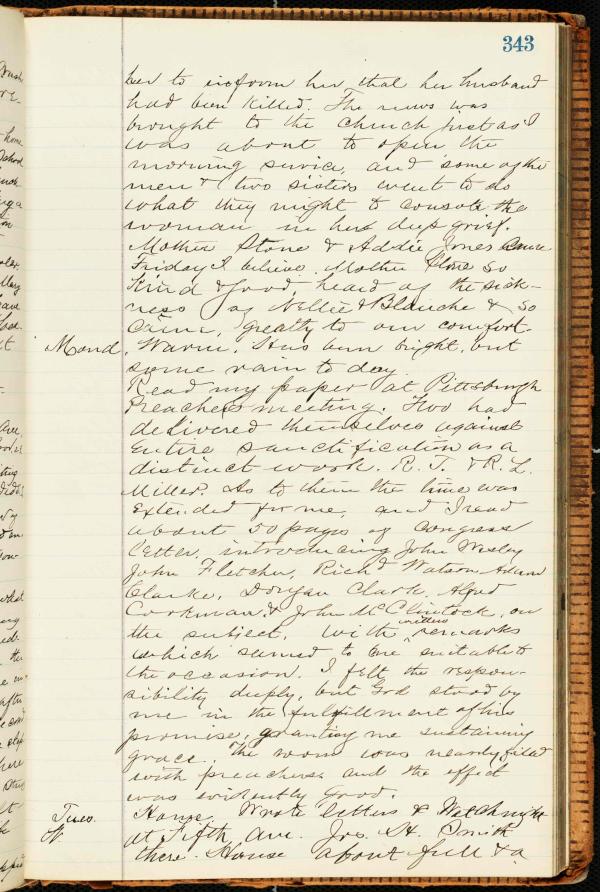 343
her to inform her that her husband
had been killed. The news was
brought to the church just as I
was about to open the
morning service, and some of the
men & two sisters went to do
what they might to console the
woman in her deep grief.
Mother Stone & Addie Jones came
Friday I believe. Mother Stone so
kind & good, heard of the sick-
ness of Nellie & Blanche & so
came, greatly to our comfort.
Mond. Warm. Has been bright, but
some rain to day.
Read my paper at Pittsburgh
Preachers meeting. Two had
delivered themselves against
entire sanctification as a
distinct work. R. T. & R. L.
Miller. As to them the time was
extended for me, and I read
about 50 pages of Congress
letter, introducing John Wesley
John Fletcher, Richd Watson Adam
Clarke, Dougan Clark, Alfred
Cookman & John McClintock, on
the subject, with written remarks
which seemed to me suitable to
the occasion. I felt the respon-
sibility deeply, but God stood by
me in the fulfillment of his
promise, granting me sustaining
grace. The room was nearly filled
with preachers and the effect
was evidently good.
Tues. Home. Wrote letters & Watchnight
W. at Fifth Ave. Jos. H. Smith
there. House about full & a